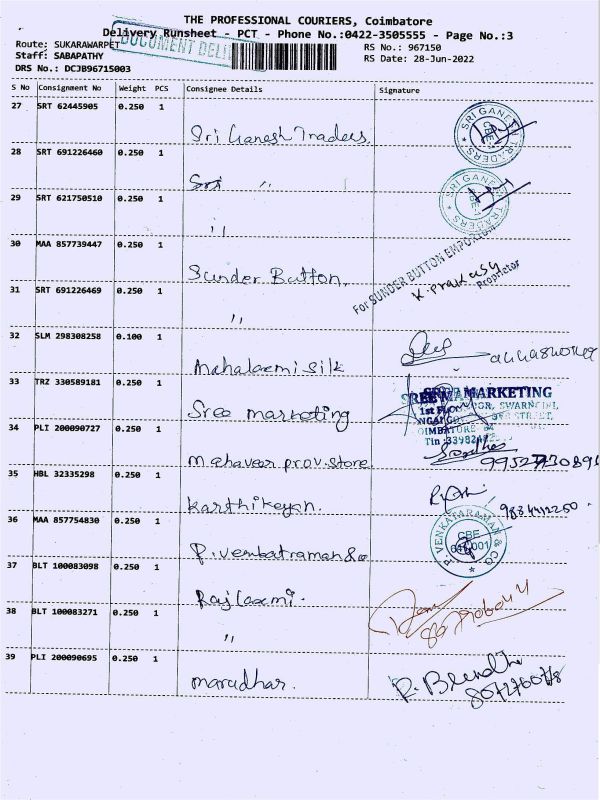 THE PROFESSIONAL COURIERS, Coimbatore
Delivery Runsheet - PCT - Phone No.:0422-3505555 - Page No.:3
Route: SUKARAWARPET
DOCUMENT
RS No.: 967150
Staff: SABAPATHY
RS Date: 28-Jun-2022
DRS No.: DCJB96715003
S No Consignment No Weight PCS Consignee Details Signature
27 SRT 62445905 0.250 1
Sri Ganesh Traders
SRI GANESH TRADERS CBE-1
28 SRT 691226460 0.250 1
Sri "
SRI GANESH TRADERS CBE-1
29 SRT 621750510 0.250 1
"
30 MAA 857739447 0.250 1
Sunder Button
For SUNDER BUTTON EMPORIUM
Proprietor
31 SRT 691226469 0.250 1
"
32 SLM 298308258 0.100 1
Mahalaxmi silk
33 TRZ 330589181 0.250 1
Sree marketing
SREE MARKETING
34 PLI 200090727 0.250 1
Mahaveer prov. store
35 HBL 32335298 0.250 1
Karthikeyan.
36 MAA 857754830 0.250 1
P. venkatraman & co
P. VENKATARAMAN & CO CBE 641 001
37 BLT 100083098 0.250 1
Raj laxmi.
38 BLT 100083271 0.250 1
"
39 PLI 200090695 0.250 1
marudhar.